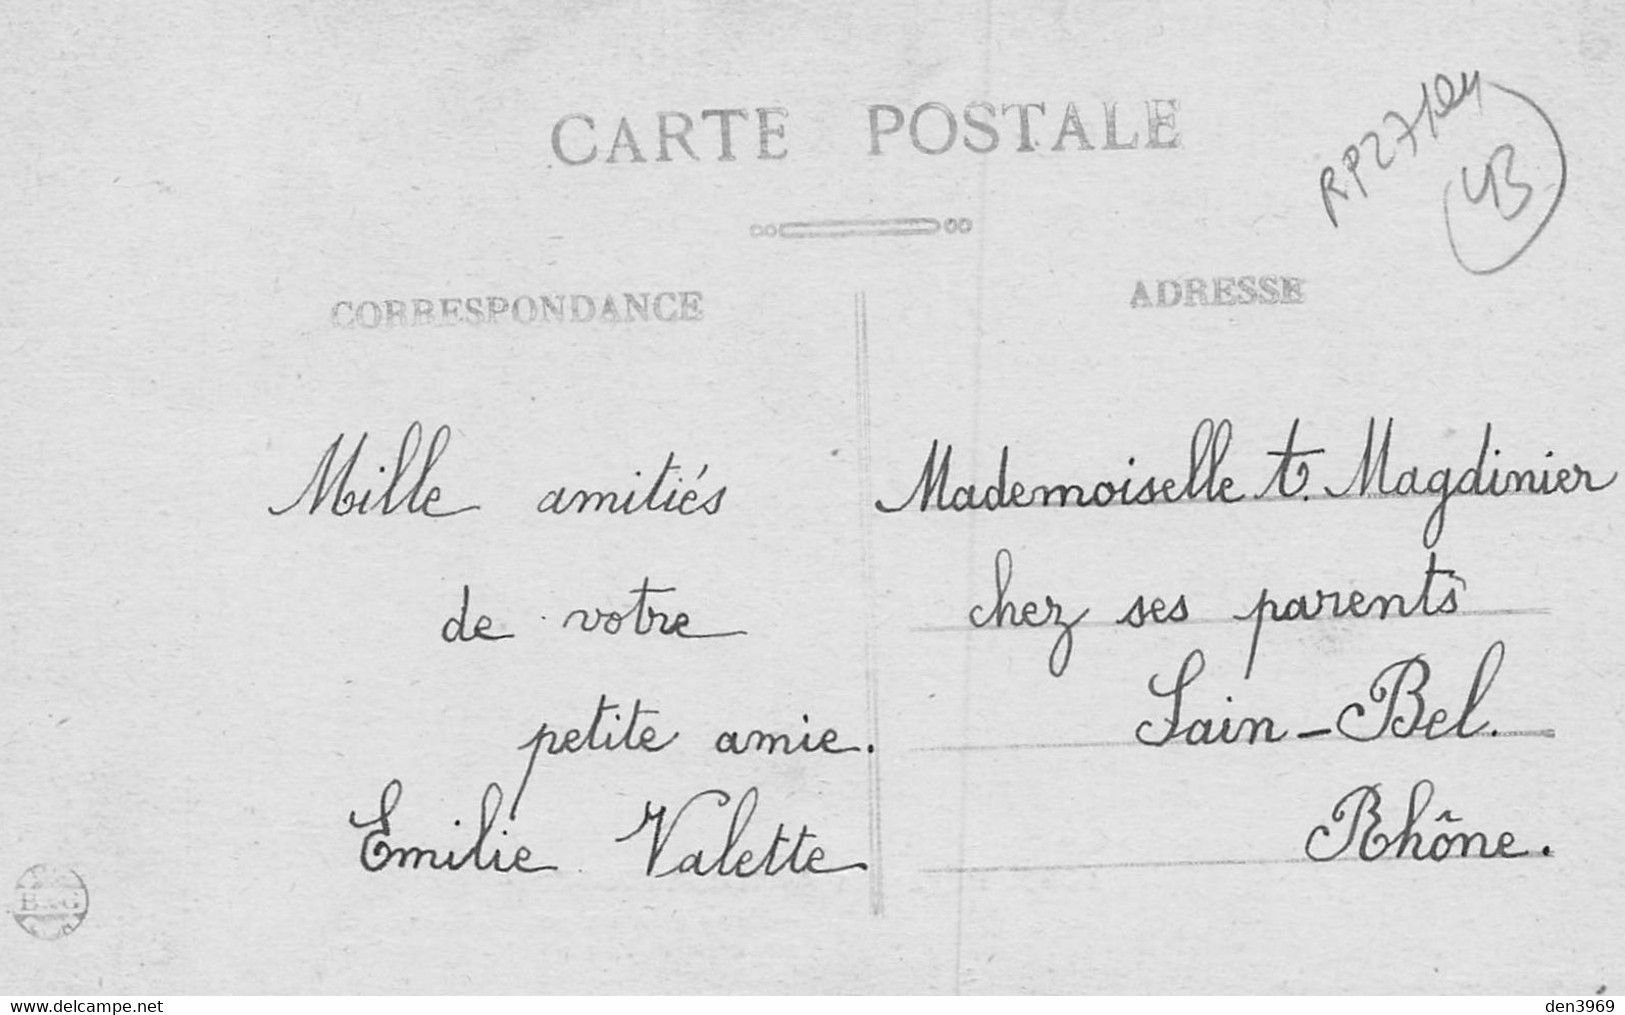 CARTE POSTALE
CORRESPONDANCE
ADRESSE
43
Mille amitiés
de votre
petite amie.
Emilie Valette
Mademoiselle t. Magdinier
chez ses parents
Sain-Bel.
Rhône.
www.delcampe.net
den3969